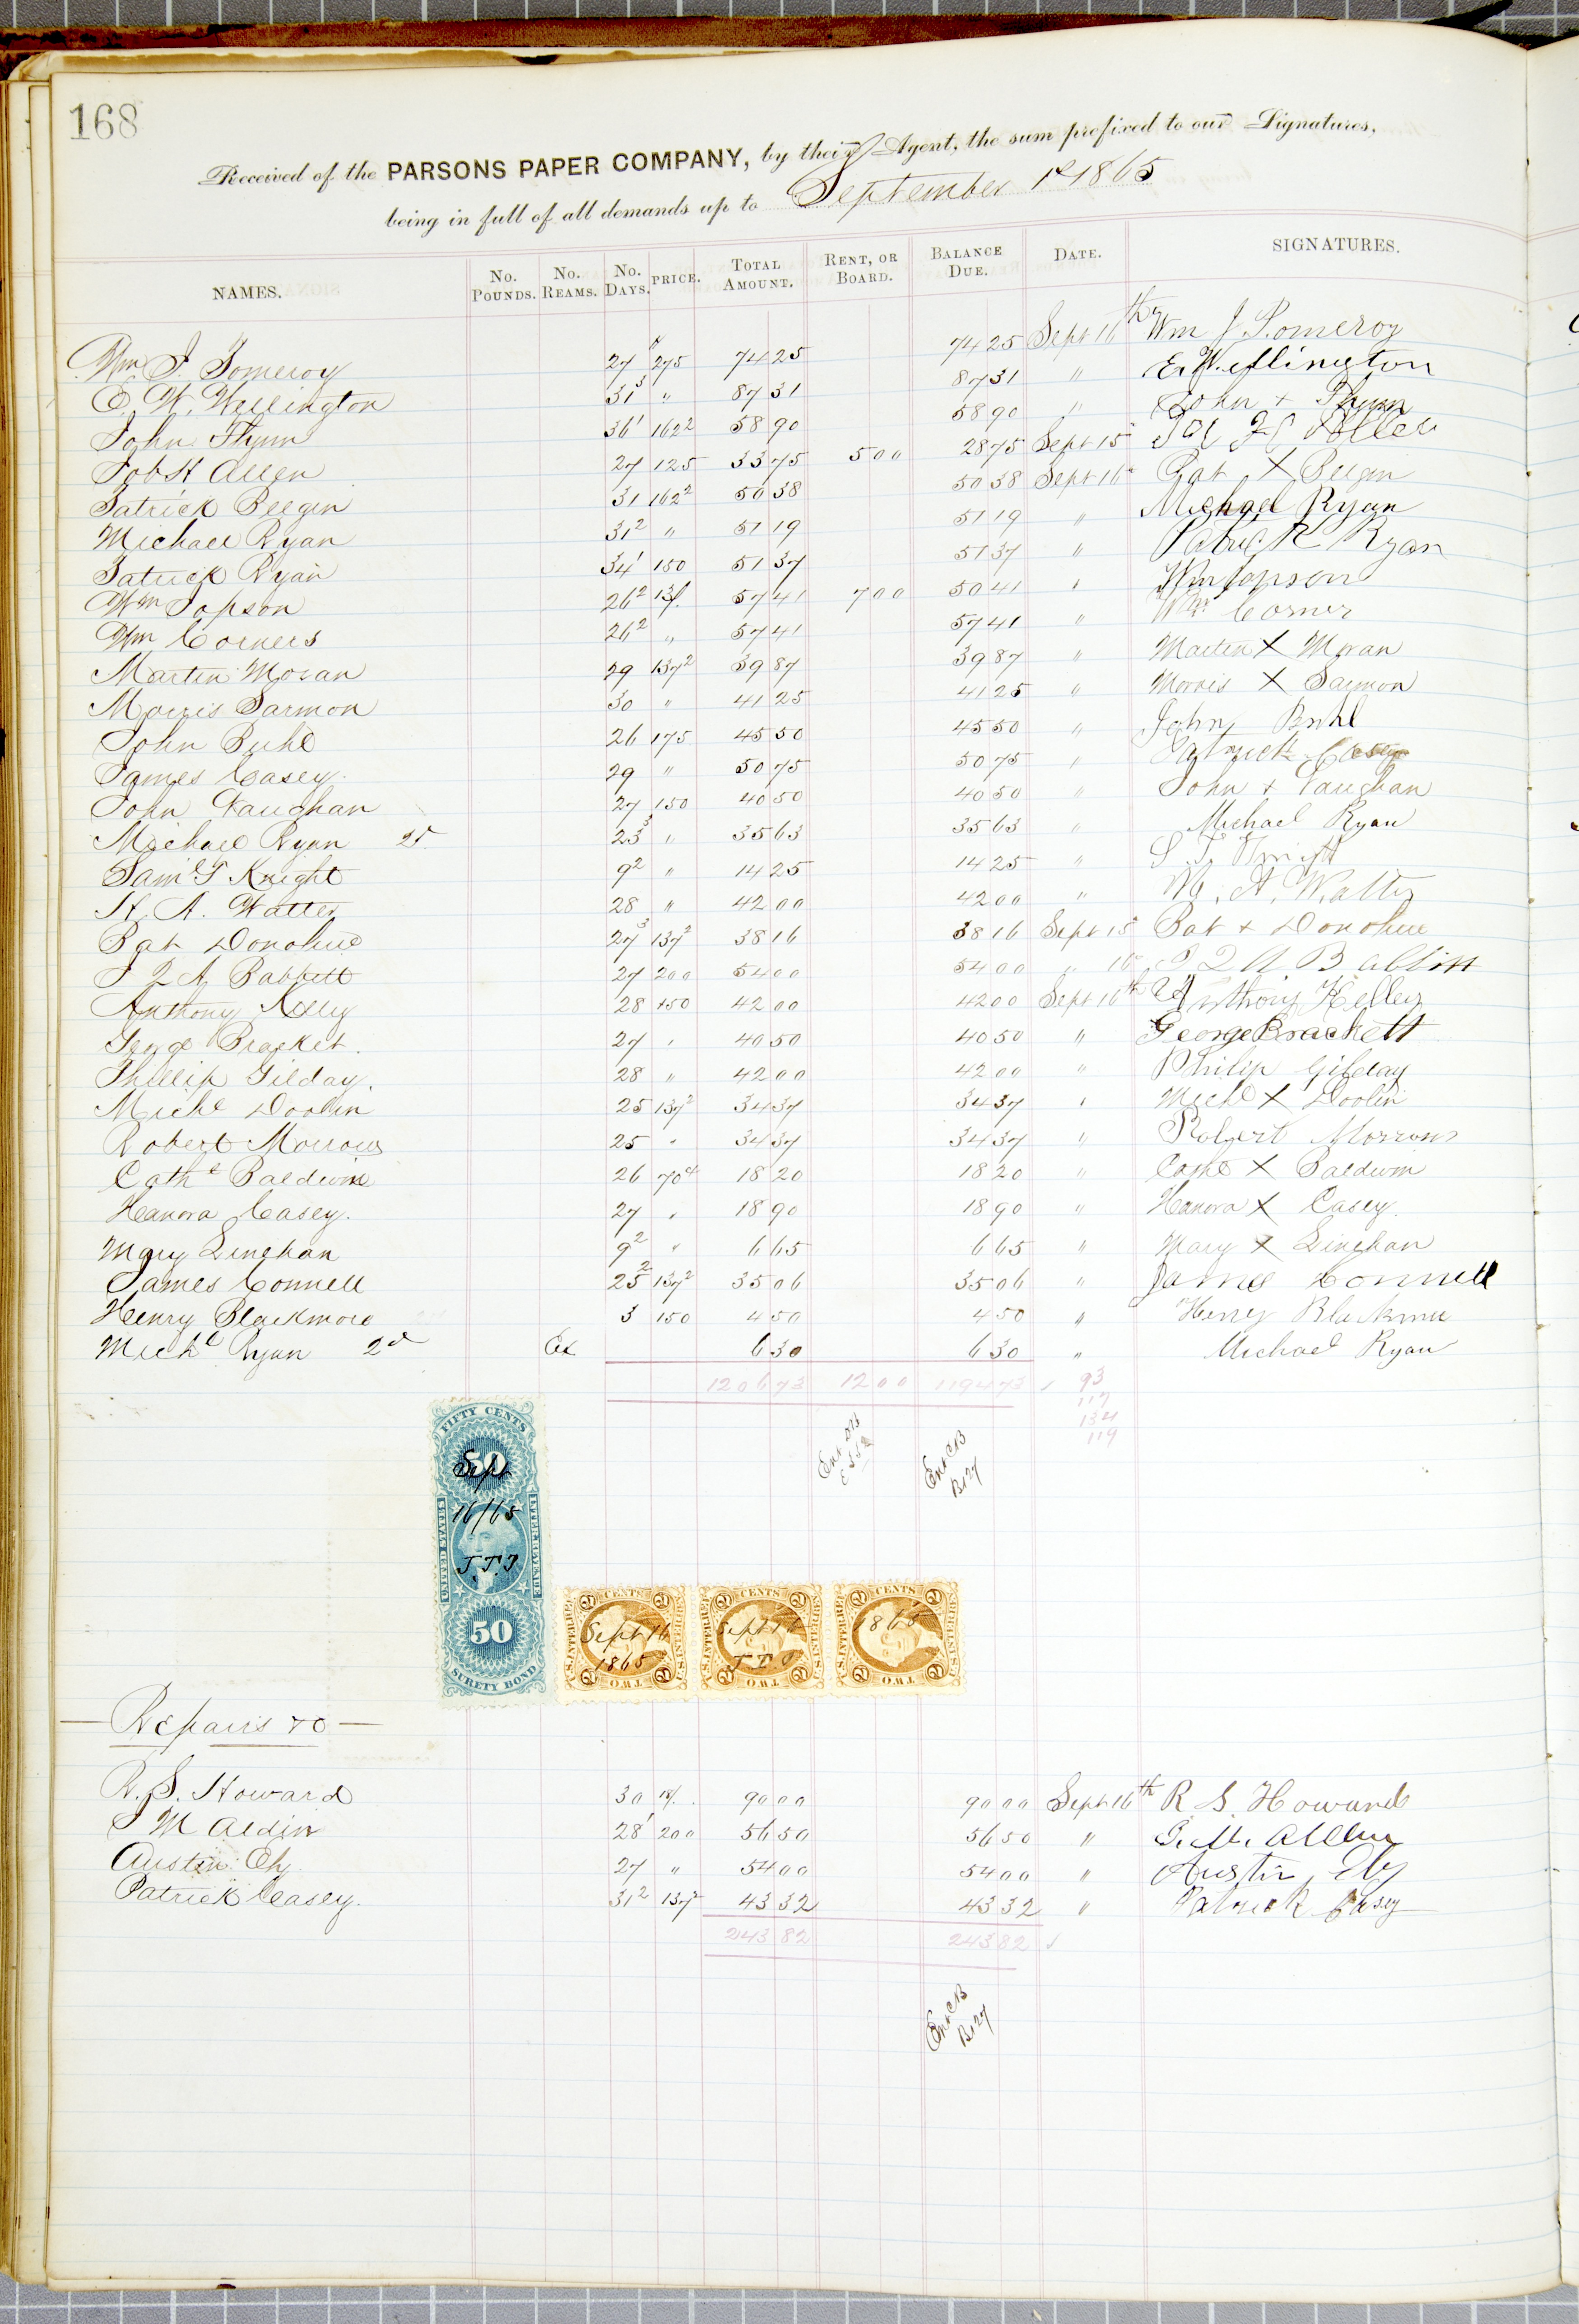 168
Received of the PARSONS PAPER COMPANY, by their Agent, the sum prefixed to our Signatures,
being in full of all demands up to September 1st 1865
NAMES. No. Pounds. No. Reams. No. Days. PRICE. Total Amount. Rent, or Board. Balance Due. Date. SIGNATURES.
Wm J. Pomeroy 27 275 74 25 74 25 Sept 16th Wm J Pomeroy
E. W. Wellington 31 3 " 87 31 87 31 " E. Wellington
John Flynn 36 1 162 2 58 90 58 90 " John + Flynn
Job H Allen 27 125 33 75 5 00 28 75 Sept 15
Patrick Beegin 31 162 2 50 38 50 38 Sept 16 Pat X Beegin
Michael Ryan 31 2 " 51 19 51 19 " Michael Ryan
Patrick Ryan 34 1 150 51 37 51 37 " Patrick Ryan
Wm Jopson 26 2 13/. 57 41 7 00 50 41 " Wm Jopson
Wm Corners 26 2 " 57 41 57 41 " Wm Corner
Martin Moran 29 137 2 39 87 39 87 " Martin X Moran
Morris Sarmon 30 " 41 25 41 25 " Morris X Sarmon
John Buhl 26 175 45 50 45 50 " John Buhl
James Casey. 29 " 50 75 50 75 " Patrick Casey
John Vaughan 27 150 40 50 40 50 " John + Vaughan
Michael Ryan 2d 23 3 " 35 63 35 63 " Michael Ryan
Saml T Knight 9 2 " 14 25 14 25 " S. T. Knight
H. A. Walter 28 " 42 00 42 00 " A. Walter
Pat Donohue 27 3 137 2 38 16 38 16 Sept 15 Pat + Donohue
J Q A Babbett 27 200 54 00 54 00 " 16 J Q A Babbitt
Anthony Kelly 28 150 42 00 42 00 Sept 16th Anthony Kelley
George Bracket. 27 " 40 50 40 50 " George Brackett
Phillip Gilday. 28 " 42 00 42 00 " Philip Gilday
Michl Doolin 25 137 2 34 37 34 37 " Michl X Doolin
Robert Morrow 25 " 34 37 34 37 " Robert Morrow
Cathe Baldwin 26 70c 18 20 18 20 " Cathe X Baldwin
Hanora Casey. 27 " 18 90 18 90 " Hanora X Casey.
Mary Linehan 9 2 " 6 65 6 65 " Mary X Linehan
James Connell 25 2 137 2 35 06 35 06 " James Connell
Henry Blackmore 3 150 4 50 4 50 " Henry Blackmore
Michl Ryan 2d Ex 6 30 6 30 " Michael Ryan
1206 73 12 00 1194 73 ✓ 93
117
134
119
Ent CB
B127
FIFTY CENTS
50
Sept
16/65
J.T.P
UNITED STATES
INTER. REVENUE
50
SURETY BOND
2 CENTS 2
U.S. INTER. REV.
Sept 16
1865
2 TWO 2
2 CENTS 2
U.S. INTER. REV.
Sept 16
J T P
2 TWO 2
2 CENTS 2
U.S. INTER. REV.
1865
2 TWO 2
— Repairs &c —
R. S. Howard 30 18/. 90 00 90 00 Sept 16th R. S. Howard
J M Aldin 28 1 200 56 50 56 50 "
Austin Ely. 27 " 54 00 54 00 " Austin Ely
Patrick Casey. 31 2 137 2 43 32 43 32 " Patrick Casey
243 82 243 82 ✓
Ent CB
B127